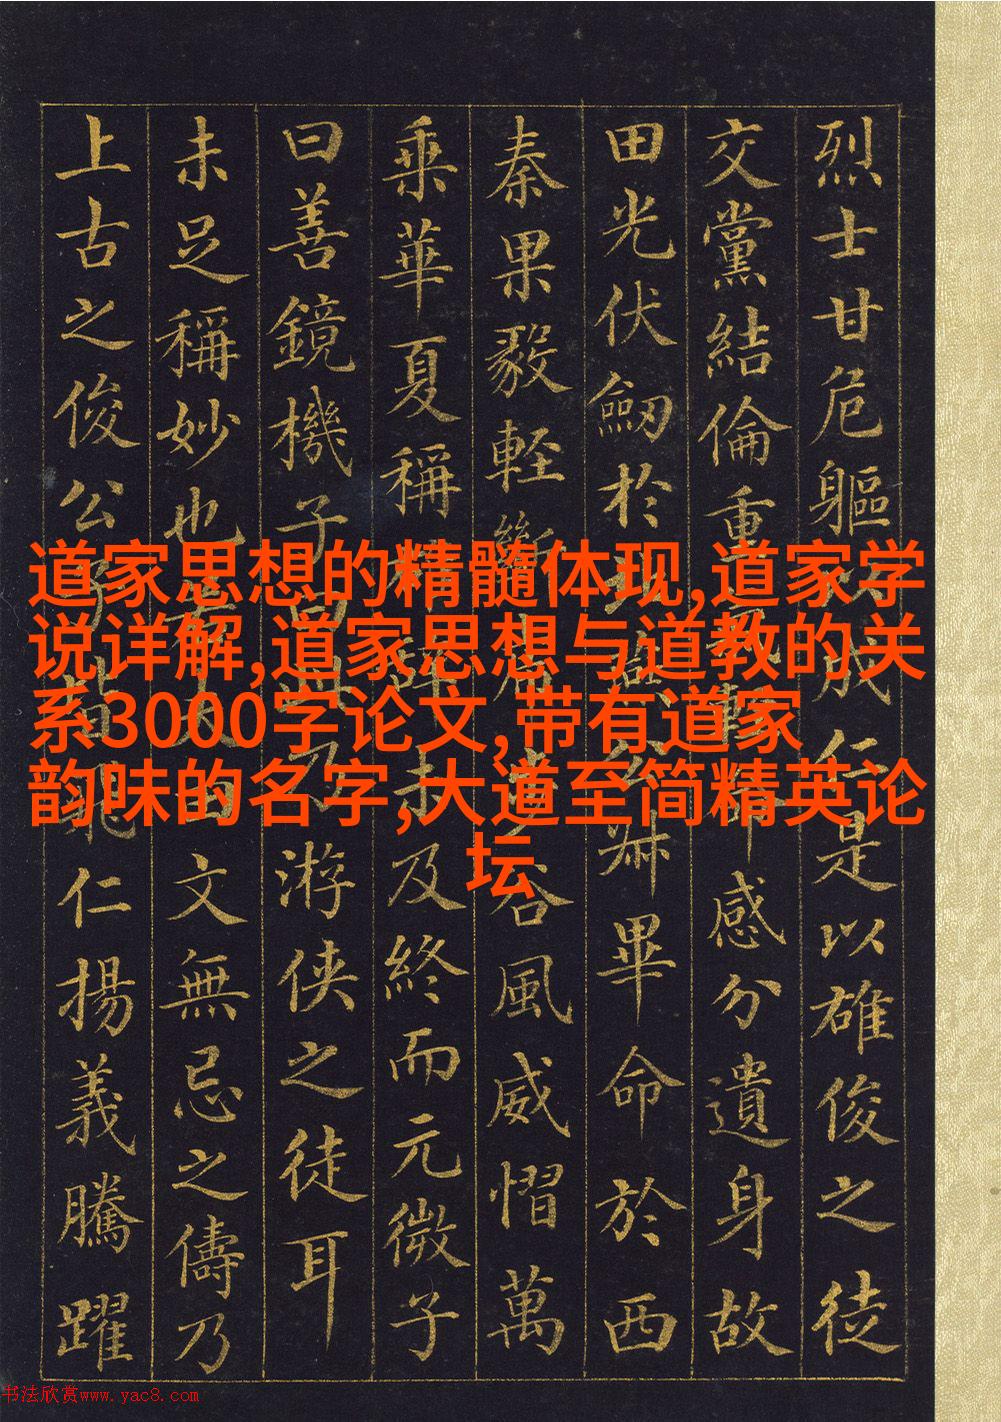 烈士甘危軀以成行是以雄俊之徒
交黨結倫重氣輕命感分遺身故
田光伏劒於北燕公叔畢命於西
秦果毅輕斷虎步谷風威慴萬
乘華夏稱雄辭未及終而元微子
曰善鏡機子曰此乃游俠之徒耳
未足稱妙也若夫田文無忌之儔乃
上古之俊公子也皆飛仁揚義騰躍
道家思想的精髓体现,道家学
说详解,道家思想与道教的关
系3000字论文,带有道家
韵味的名字,大道至简精英论
坛
书法欣赏www.yac8.com